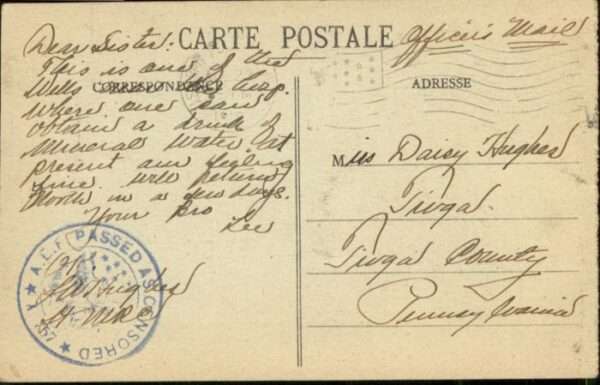 CARTE POSTALE
Officer's Mail
CORRESPONDANCE
ADRESSE
Dear Sister:
This is one of the
Wells
Where one can
obtain a drink of
Mineral Water. at
present am feeling
fine. Will return
North in a few days.
Your Bro
Lee
Miss Daisy Hughes
Tioga
Tioga County
Pennsylvania
A.E.F. PASSED AS CENSORED
Hughes